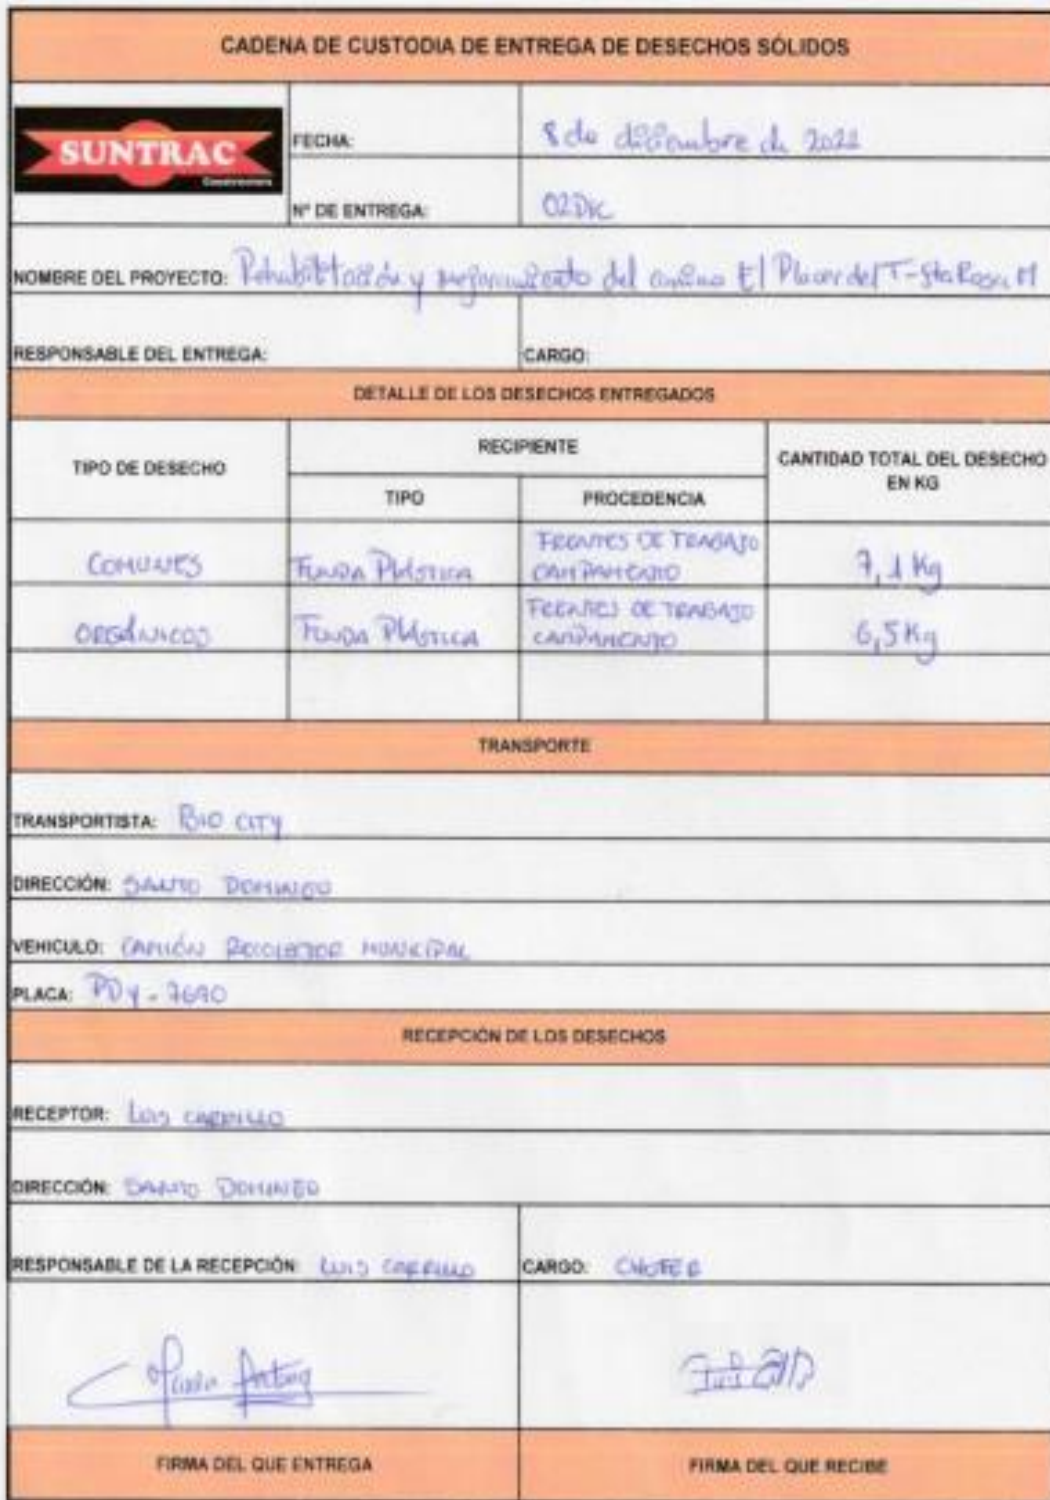 CADENA DE CUSTODIA DE ENTREGA DE DESECHOS SÓLIDOS
SUNTRAC
Constructora
FECHA: 8 de diciembre de 2022
N° DE ENTREGA: 02DIC
NOMBRE DEL PROYECTO: Rehabilitación y mejoramiento del camino El Placer del T-Sta Rosa M
RESPONSABLE DEL ENTREGA: CARGO:
DETALLE DE LOS DESECHOS ENTREGADOS
TIPO DE DESECHO
RECIPIENTE
CANTIDAD TOTAL DEL DESECHO
EN KG
TIPO PROCEDENCIA
COMUNES FUNDA PLÁSTICA FRENTES DE TRABAJO
CAMPAMENTO 7,1 Kg
ORGÁNICOS FUNDA PLÁSTICA FRENTES DE TRABAJO
CAMPAMENTO 6,5 Kg
TRANSPORTE
TRANSPORTISTA: BIO CITY
DIRECCIÓN: SANTO DOMINGO
VEHICULO: CAMIÓN RECOLECTOR MUNICIPAL
PLACA: PDY-7690
RECEPCIÓN DE LOS DESECHOS
RECEPTOR: LUIS CARRILLO
DIRECCIÓN: SANTO DOMINGO
RESPONSABLE DE LA RECEPCIÓN: LUIS CARRILLO CARGO: CHOFER
FIRMA DEL QUE ENTREGA FIRMA DEL QUE RECIBE